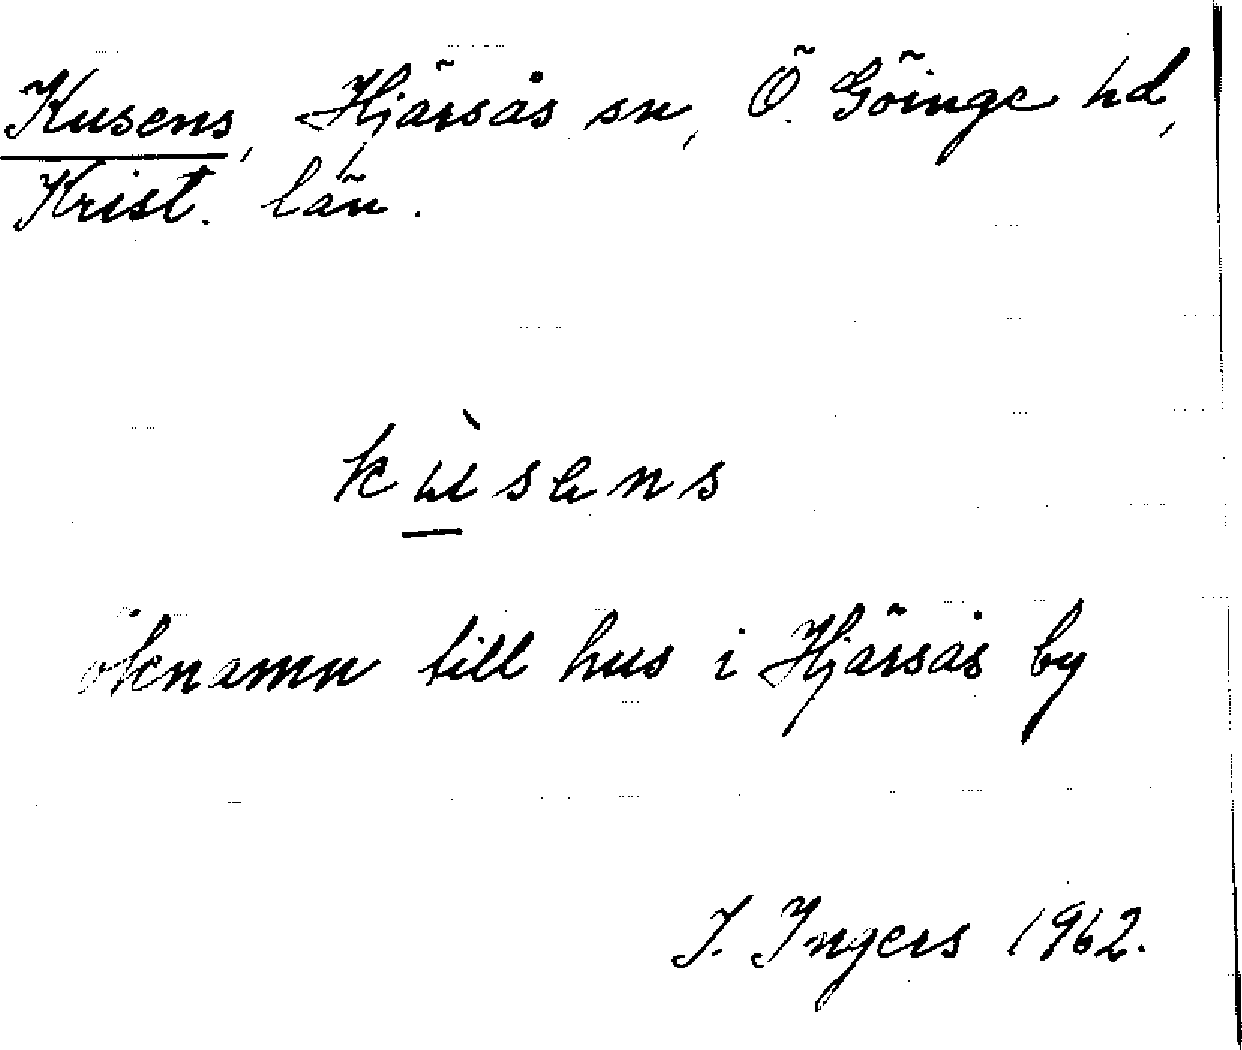 Kusens, Hjärsås sn, Ö. Göinge hd,
Krist. län.
kùsens
öknamn till hus i Hjärsås by
I. Ingers 1962.